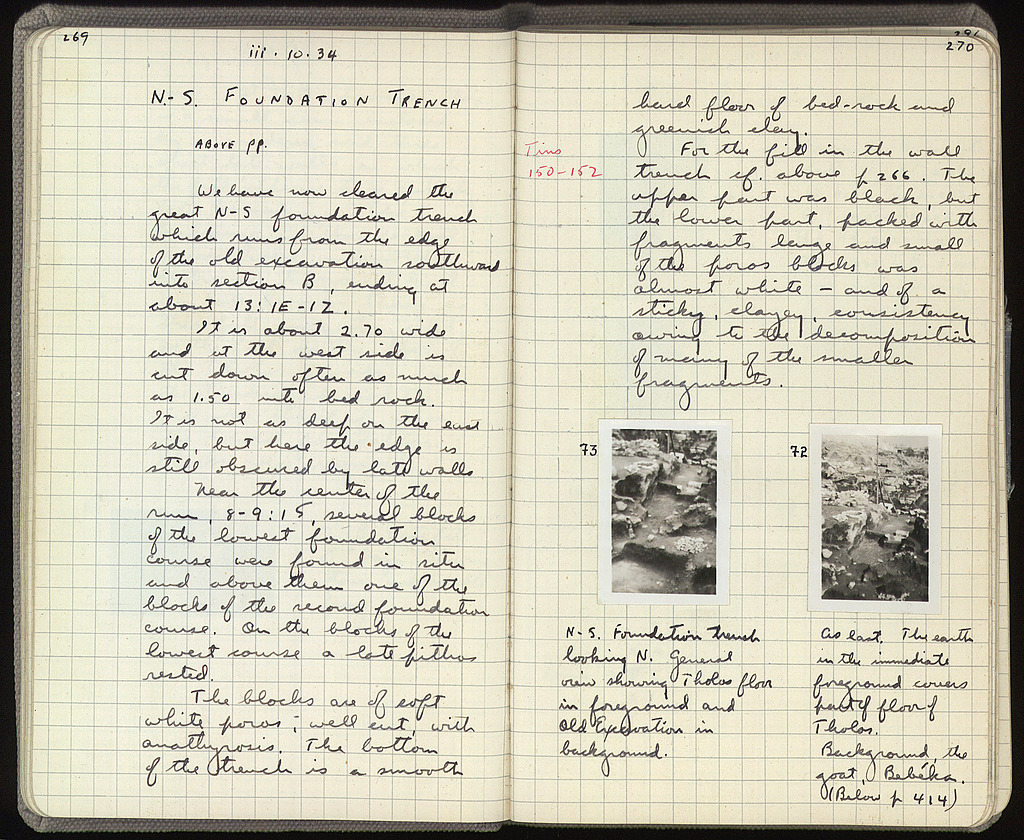 269
iii · 10 · 34
N.-S. FOUNDATION TRENCH
ABOVE pp.
We have now cleared the
great N-S foundation trench
which runs from the edge
of the old excavation southward
into section B, ending at
about 13:IE-IZ.
It is about 2.70 wide
and at the west side is
cut down often as much
as 1.50 into bed rock.
It is not as deep on the east
side, but here the edge is
still obscured by late walls
Near the center of the
run, 8-9:15, several blocks
of the lowest foundation
course were found in situ
and above them one of the
blocks of the second foundation
course. On the blocks of the
lowest course a late pithos
rested.
The blocks are of soft
white poros; well cut, with
anathyrosis. The bottom
of the trench is a smooth
270
hard floor of bed-rock and
greenish clay.
Tins
150-152
For the fill in the wall
trench cf. above p 266. The
upper part was black, but
the lower part, packed with
fragments large and small
of the poros blocks was
almost white – and of a
sticky, clayey, consistency
owing to the decomposition
of many of the smaller
fragments.
73
N-S. Foundation trench
looking N. General
view showing Tholos floor
in foreground and
Old Excavation in
background.
72
As last. The earth
in the immediate
foreground covers
part of floor of
Tholos.
Background, the
goat, Bebéka.
(Below p 414)